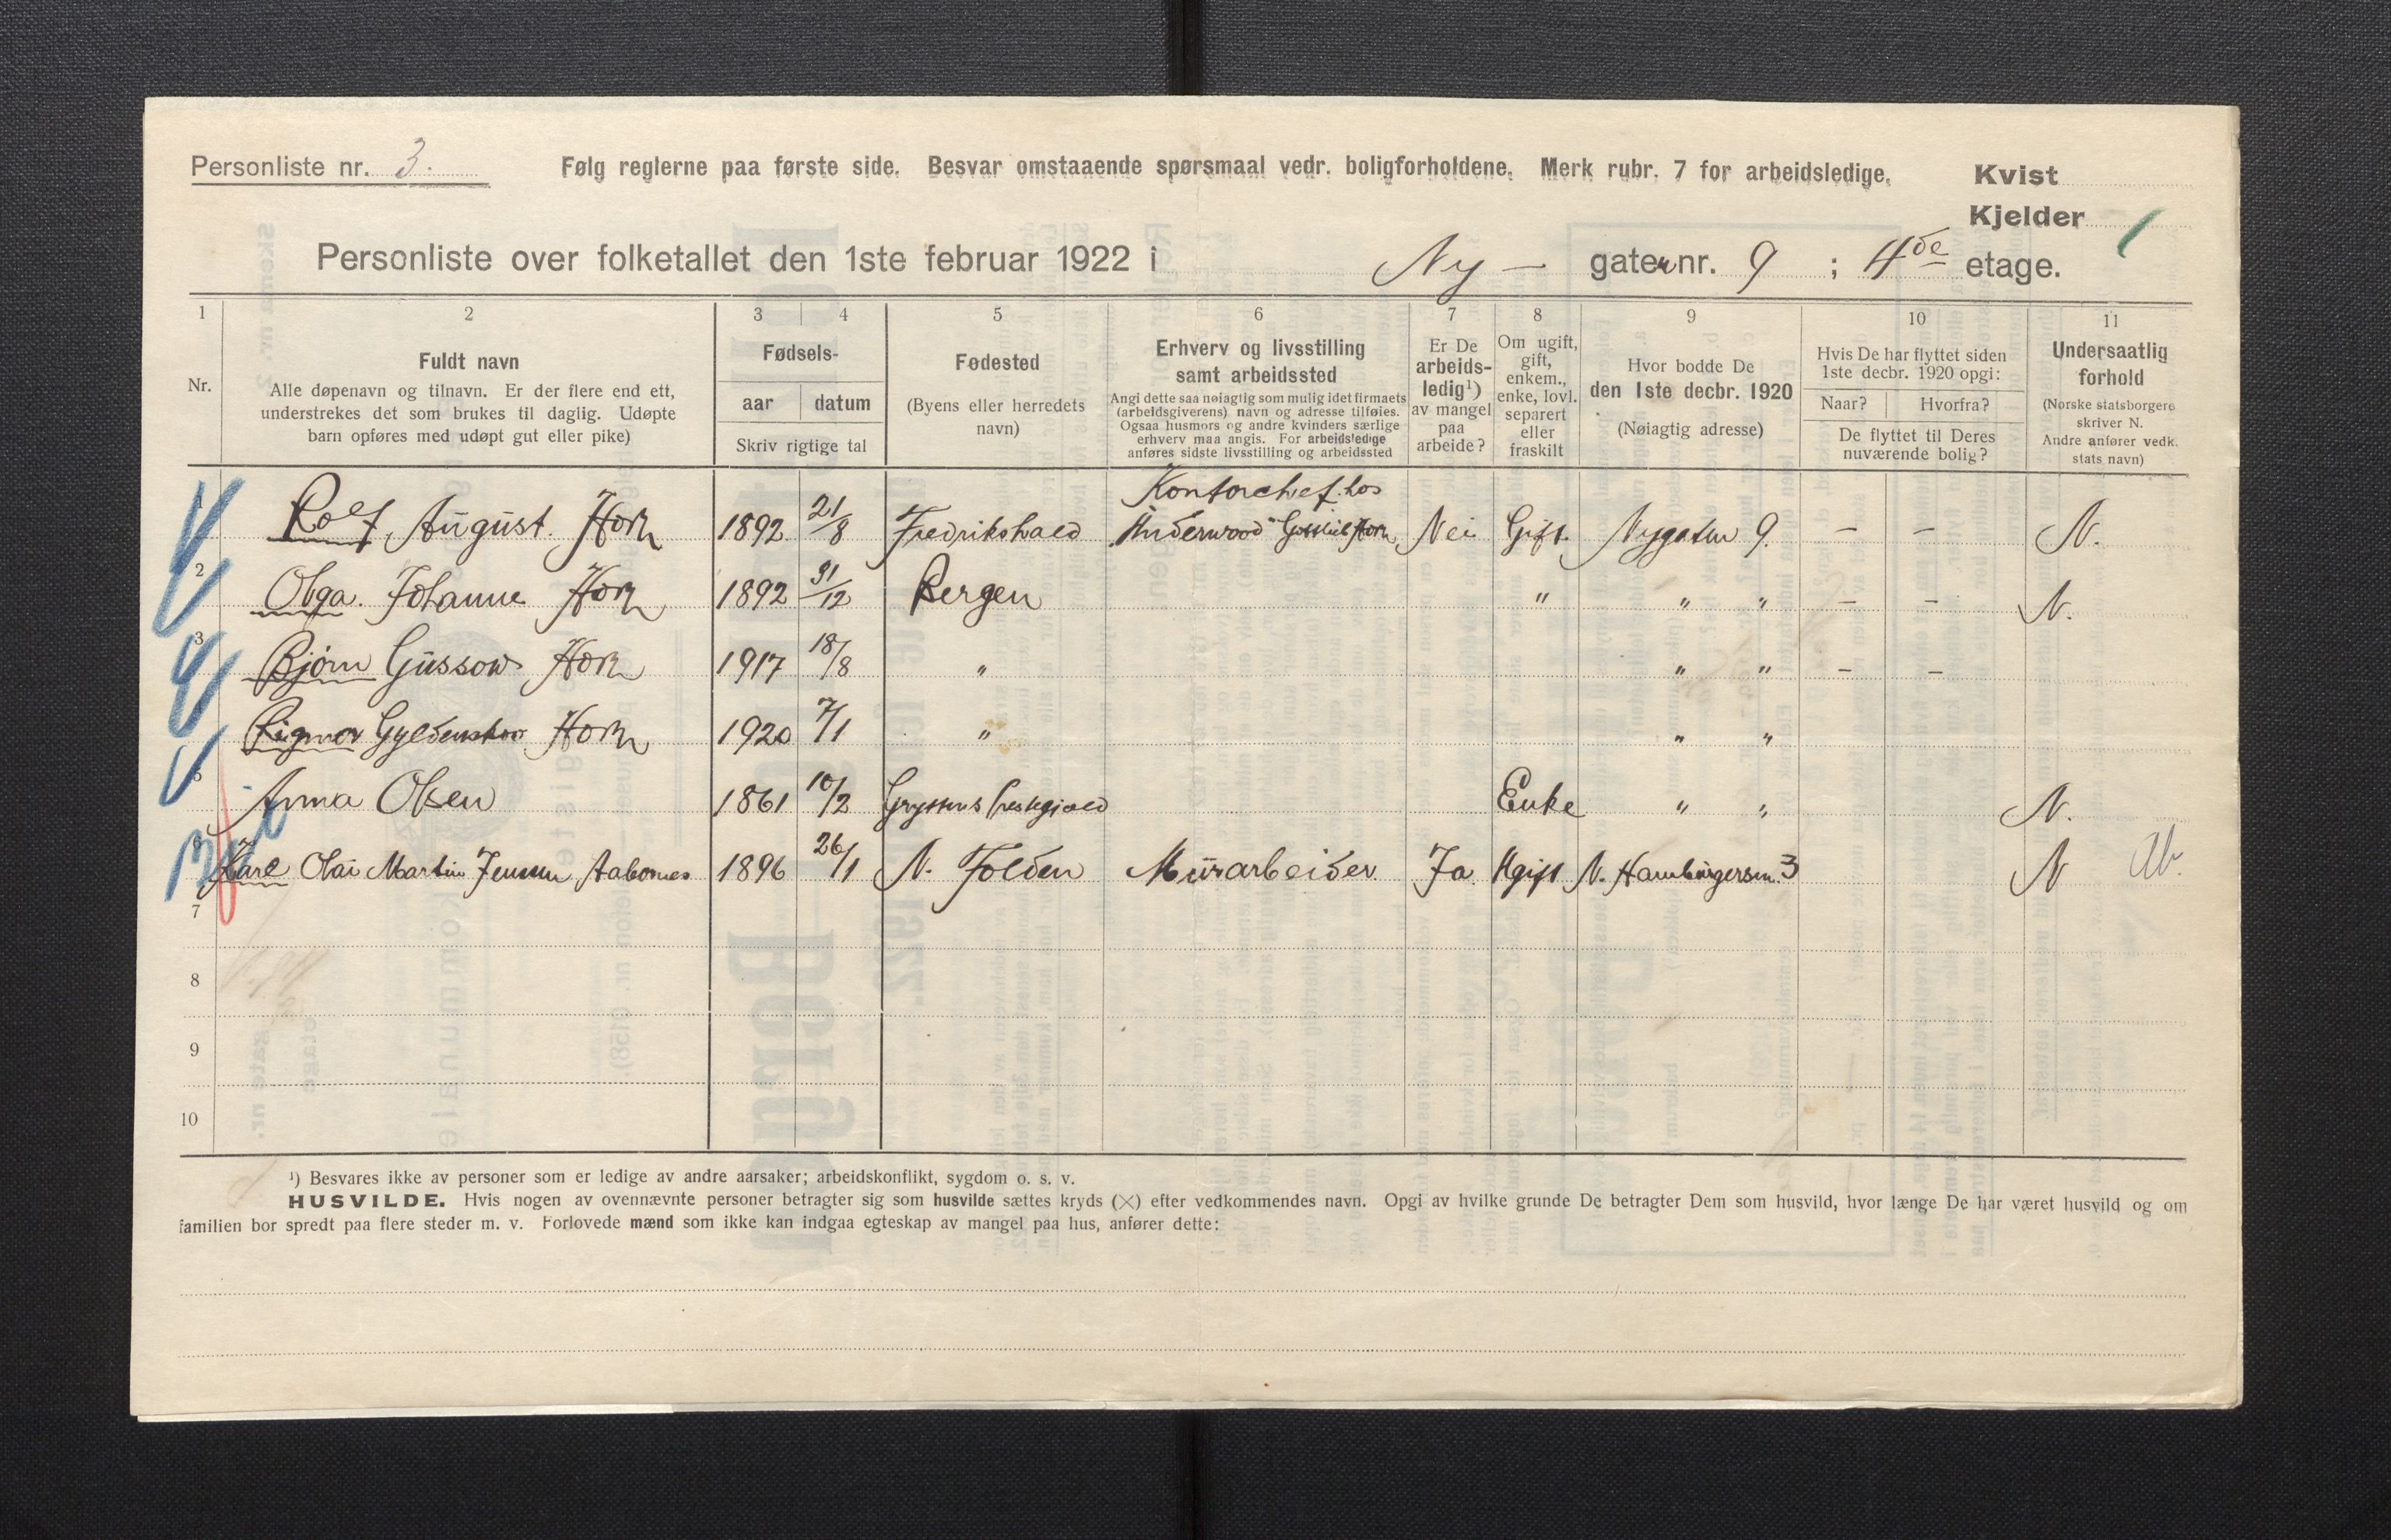 Personliste nr. 3.
Følg reglerne paa første side. Besvar omstaaende spørsmaal vedr. boligforholdene. Merk rubr. 7 for arbeidsledige.
Kvist
Kjelder
Personliste over folketallet den 1ste februar 1922 i Ny — gaten nr. 9 ; 4de etage.
1 2 3 4 5 6 7 8 9 10 11
Nr.
Fuldt navn
Alle døpenavn og tilnavn. Er der flere end ett,
understrekes det som brukes til daglig. Udøpte
barn opføres med udøpt gut eller pike)
Fødsels-
aar datum
Skriv rigtige tal
Fødested
(Byens eller herredets
navn)
Erhverv og livsstilling
samt arbeidssted
Angi dette saa nøiagtig som mulig idet firmaets
(arbeidsgiverens) navn og adresse tilføies.
Ogsaa husmors og andre kvinders særlige
erhverv maa angis. For arbeidsledige
anføres sidste livsstilling og arbeidssted
Er De
arbeids-
ledig¹)
av mangel
paa
arbeide?
Om ugift,
gift,
enkem.,
enke, lovl.
separert
eller
fraskilt
Hvor bodde De
den 1ste decbr. 1920
(Nøiagtig adresse)
Hvis De har flyttet siden
1ste decbr. 1920 opgi:
Naar? Hvorfra?
De flyttet til Deres
nuværende bolig?
Undersaatlig
forhold
(Norske statsborgere
skriver N.
Andre anfører vedk.
stats navn)
Kontorchef hos
Rolf August. Horn 1892 21/8 Fredrikshald Underwood Horn Nei Gift. Nygaten 9. — — N.
2 Olga. Johanne Horn 1892 31/12 Bergen " " " — — N.
3 Bjørn Gussow Horn 1917 18/8 " " " — —
Rigmor Horn 1920 7/1 " " "
Anna Olsen 1861 10/2 Enke " " N.
Karl Olai Martin Jensen 1896 26/1 N. Folden Murarbeider Ja Ugift N. Hamburgersm. 3 N
7
8
9
10
¹) Besvares ikke av personer som er ledige av andre aarsaker; arbeidskonflikt, sygdom o. s. v.
HUSVILDE. Hvis nogen av ovennævnte personer betragter sig som husvilde sættes kryds (×) efter vedkommendes navn. Opgi av hvilke grunde De betragter Dem som husvild, hvor længe De har været husvild og om
familien bor spredt paa flere steder m. v. Forlovede mænd som ikke kan indgaa egteskap av mangel paa hus, anfører dette: